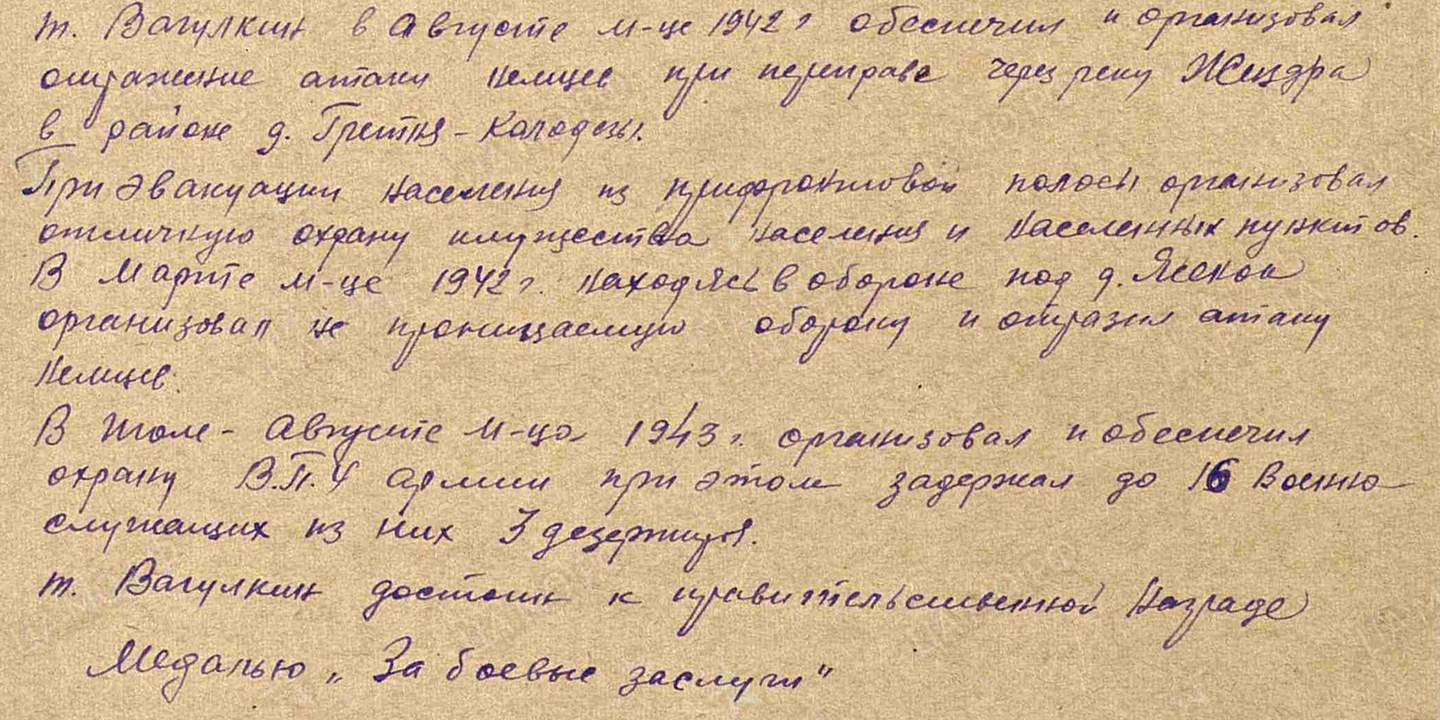 т. Вагулкин в Августе м-це 1942 г обеспечил и организовал
отражение атаки немцев при переправе через реку Жиздра
в районе д. Гретня - Колодезы.
При эвакуации населения из прифронтовой полосы организовал
отличную охрану имущества населения и населенных пунктов.
В Марте м-це 1942 г. находясь в обороне под д.
организовал не проницаемую оборону и отразил атаку
немцев.
В Июле - Августе м-ца 1943 г. организовал и обеспечил
охрану В.П.У армии при этом задержал до 16 Военно
служащих из них 3 дезертиров.
т. Вагулкин достоин к правительственной награде
Медалью „За боевые заслуги"